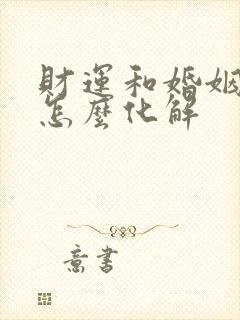 財運和婚姻
怎麼化解
意書